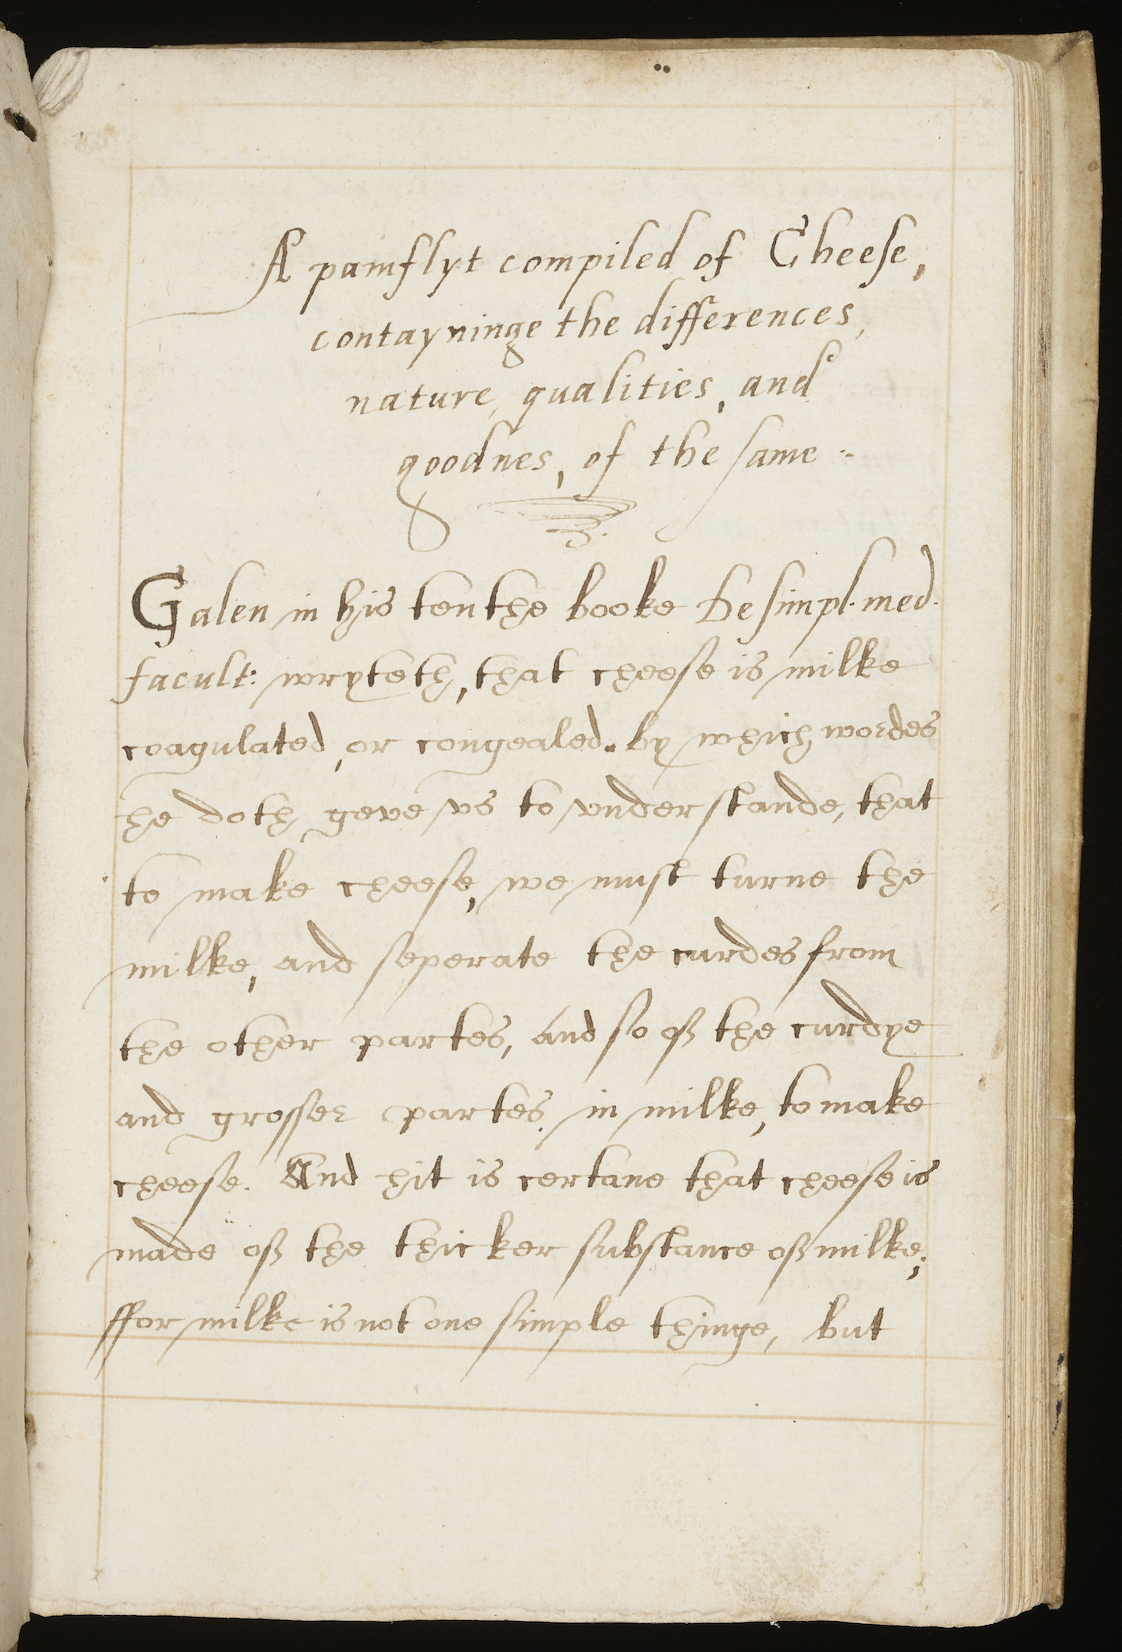 A pamflyt compiled of Cheese,
contayninge the differences,
nature, qualities, and
goodnes, of the same :~
Galen in his tenthe booke De simpl. med.
facult: wryteth, that cheese is milke
coagulated, or congealed. by which wordes
he doth geve vs to vnderstande, that
to make cheese, we must turne the
milke, and seperate the curdes from
the other partes, and so of the curdye
and grosser partes, in milke, to make
cheese. And hit is certane that cheese is
made of the thicker substance of milke;
ffor milke is not one simple thinge, but